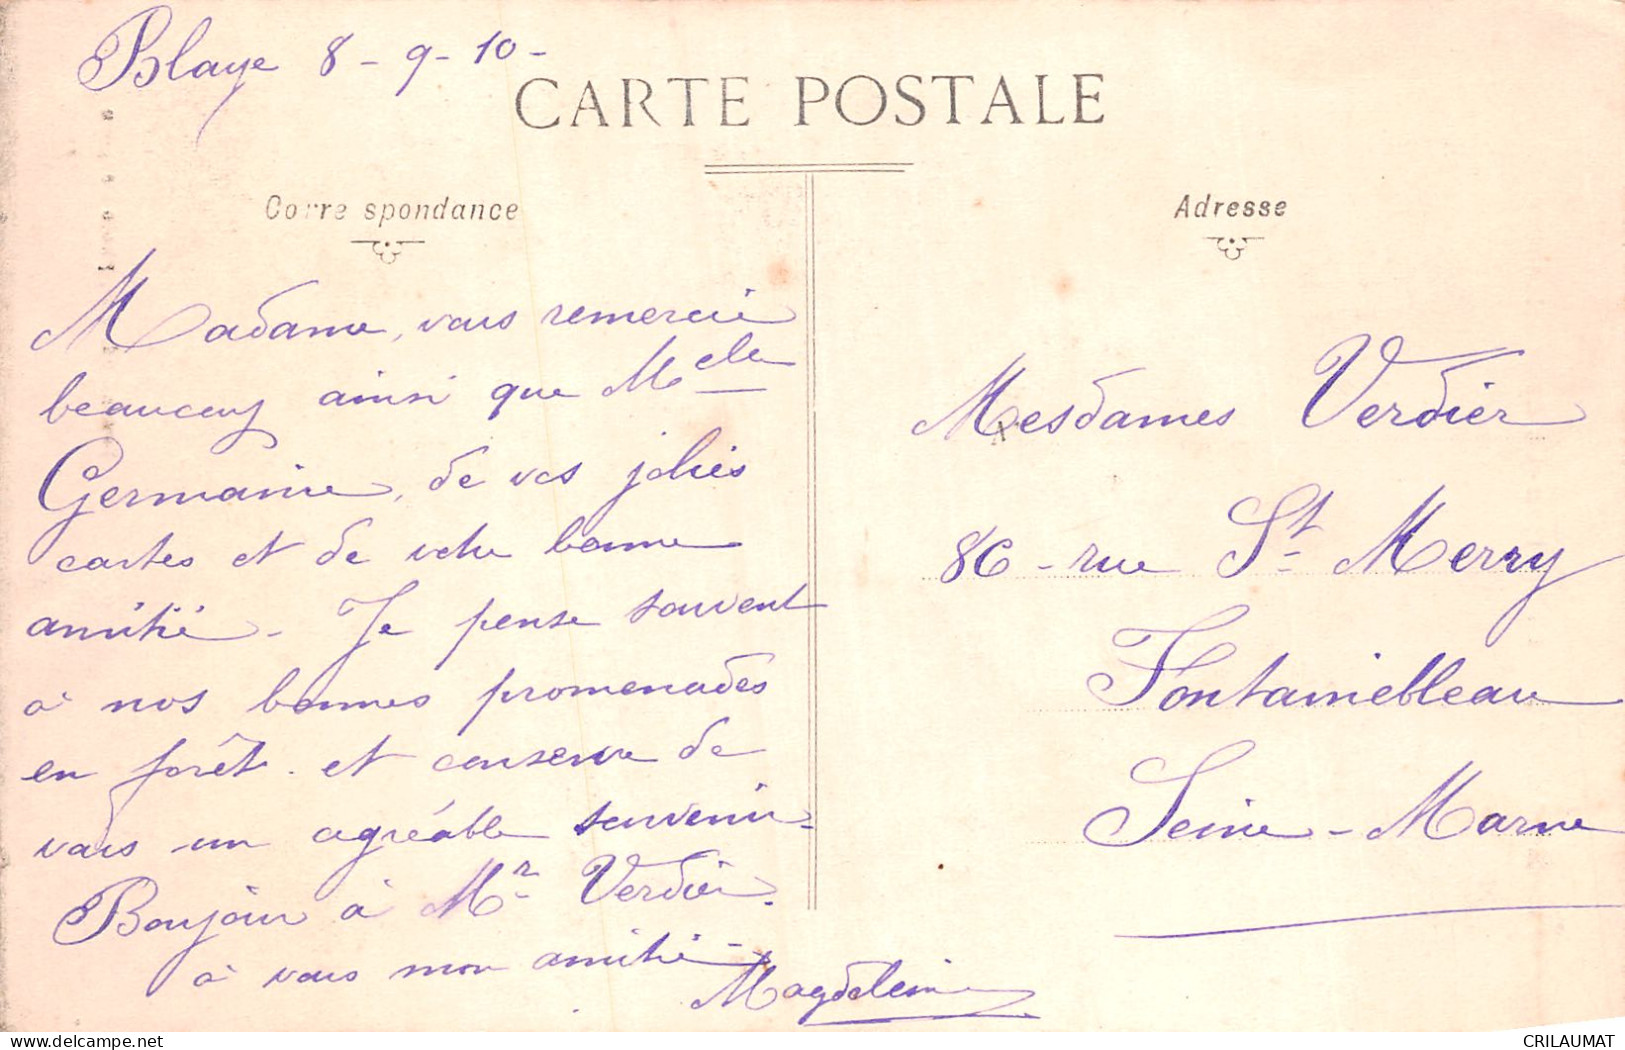 Blaye 8 - 9 - 10 -
CARTE POSTALE
Correspondance
Adresse
Madame, vous remercie
beaucoup ainsi que Melle
Germaine, de vos jolies
cartes et de votre bonne
amitié - Je pense souvent
à nos bonnes promenades
en forêt. et conserve de
vous un agréable souvenir.
Bonjour à Mr Verdier.
à vous mon amitié -
Magdeleine
Mesdames Verdier
86 - rue St Merry
Fontainebleau
Seine - Marne
CRILAUMAT